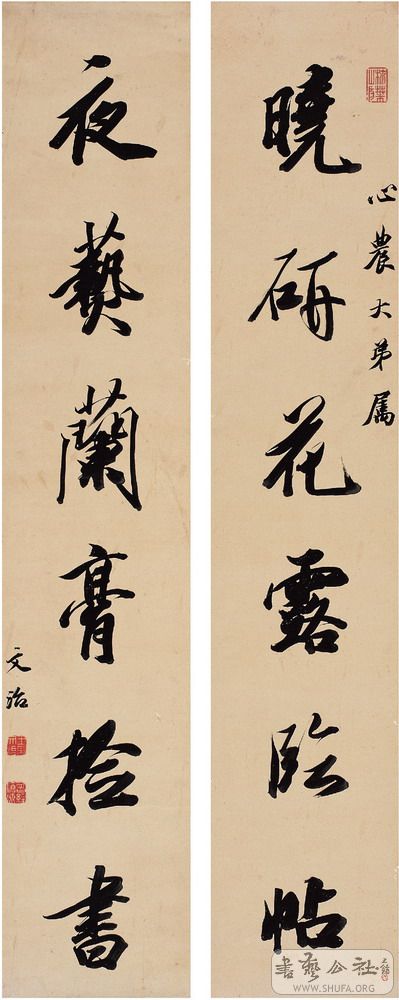 曉研花露臨帖
心農大弟属
夜爇蘭膏撿書
文治
書藝公社
WWW.SHUFA.ORG